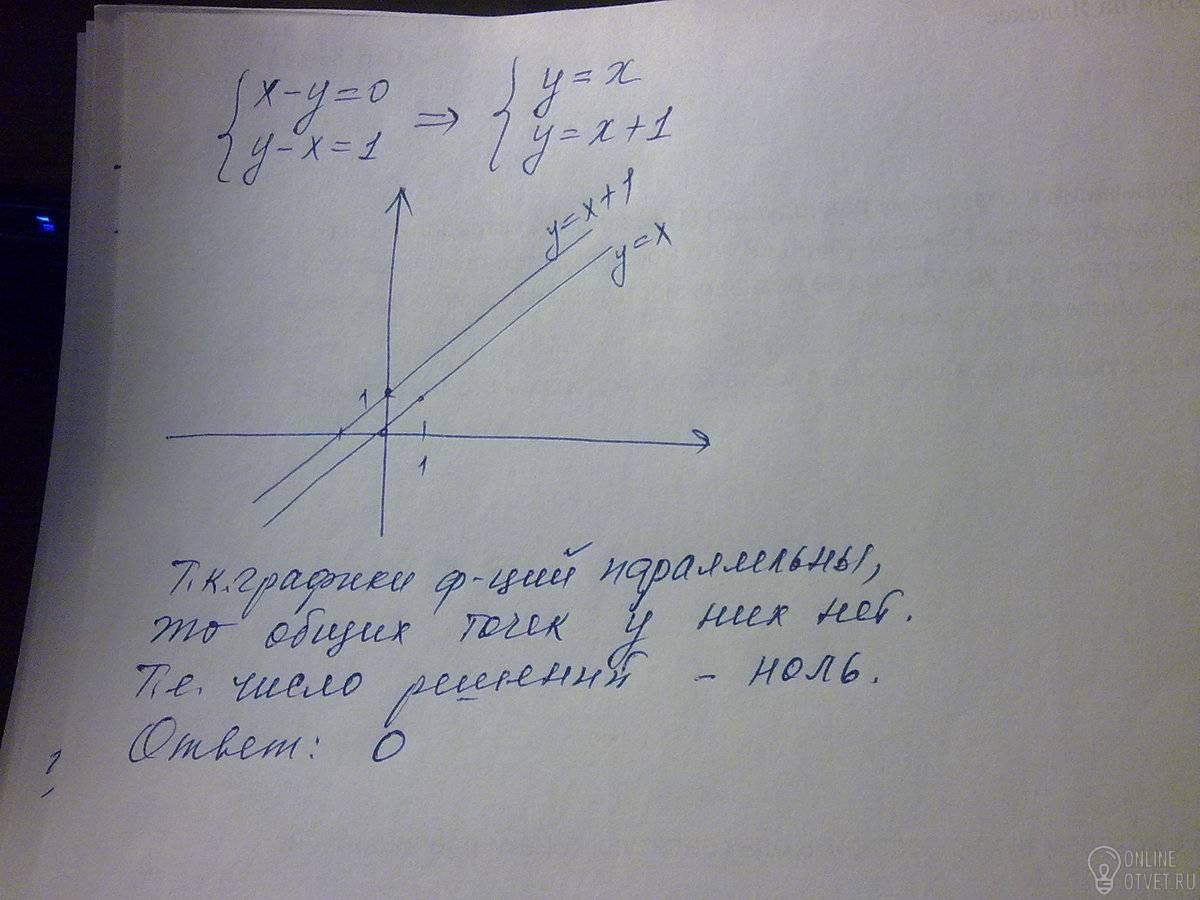 x-y=0
y-x=1
⇒
y=x
y=x+1
y=x+1
y=x
1
1
Т.к. графики ф-ций параллельны,
то общих точек у них нет.
Т.е. число решений - ноль.
Ответ: 0
ONLINE
OTVET.RU